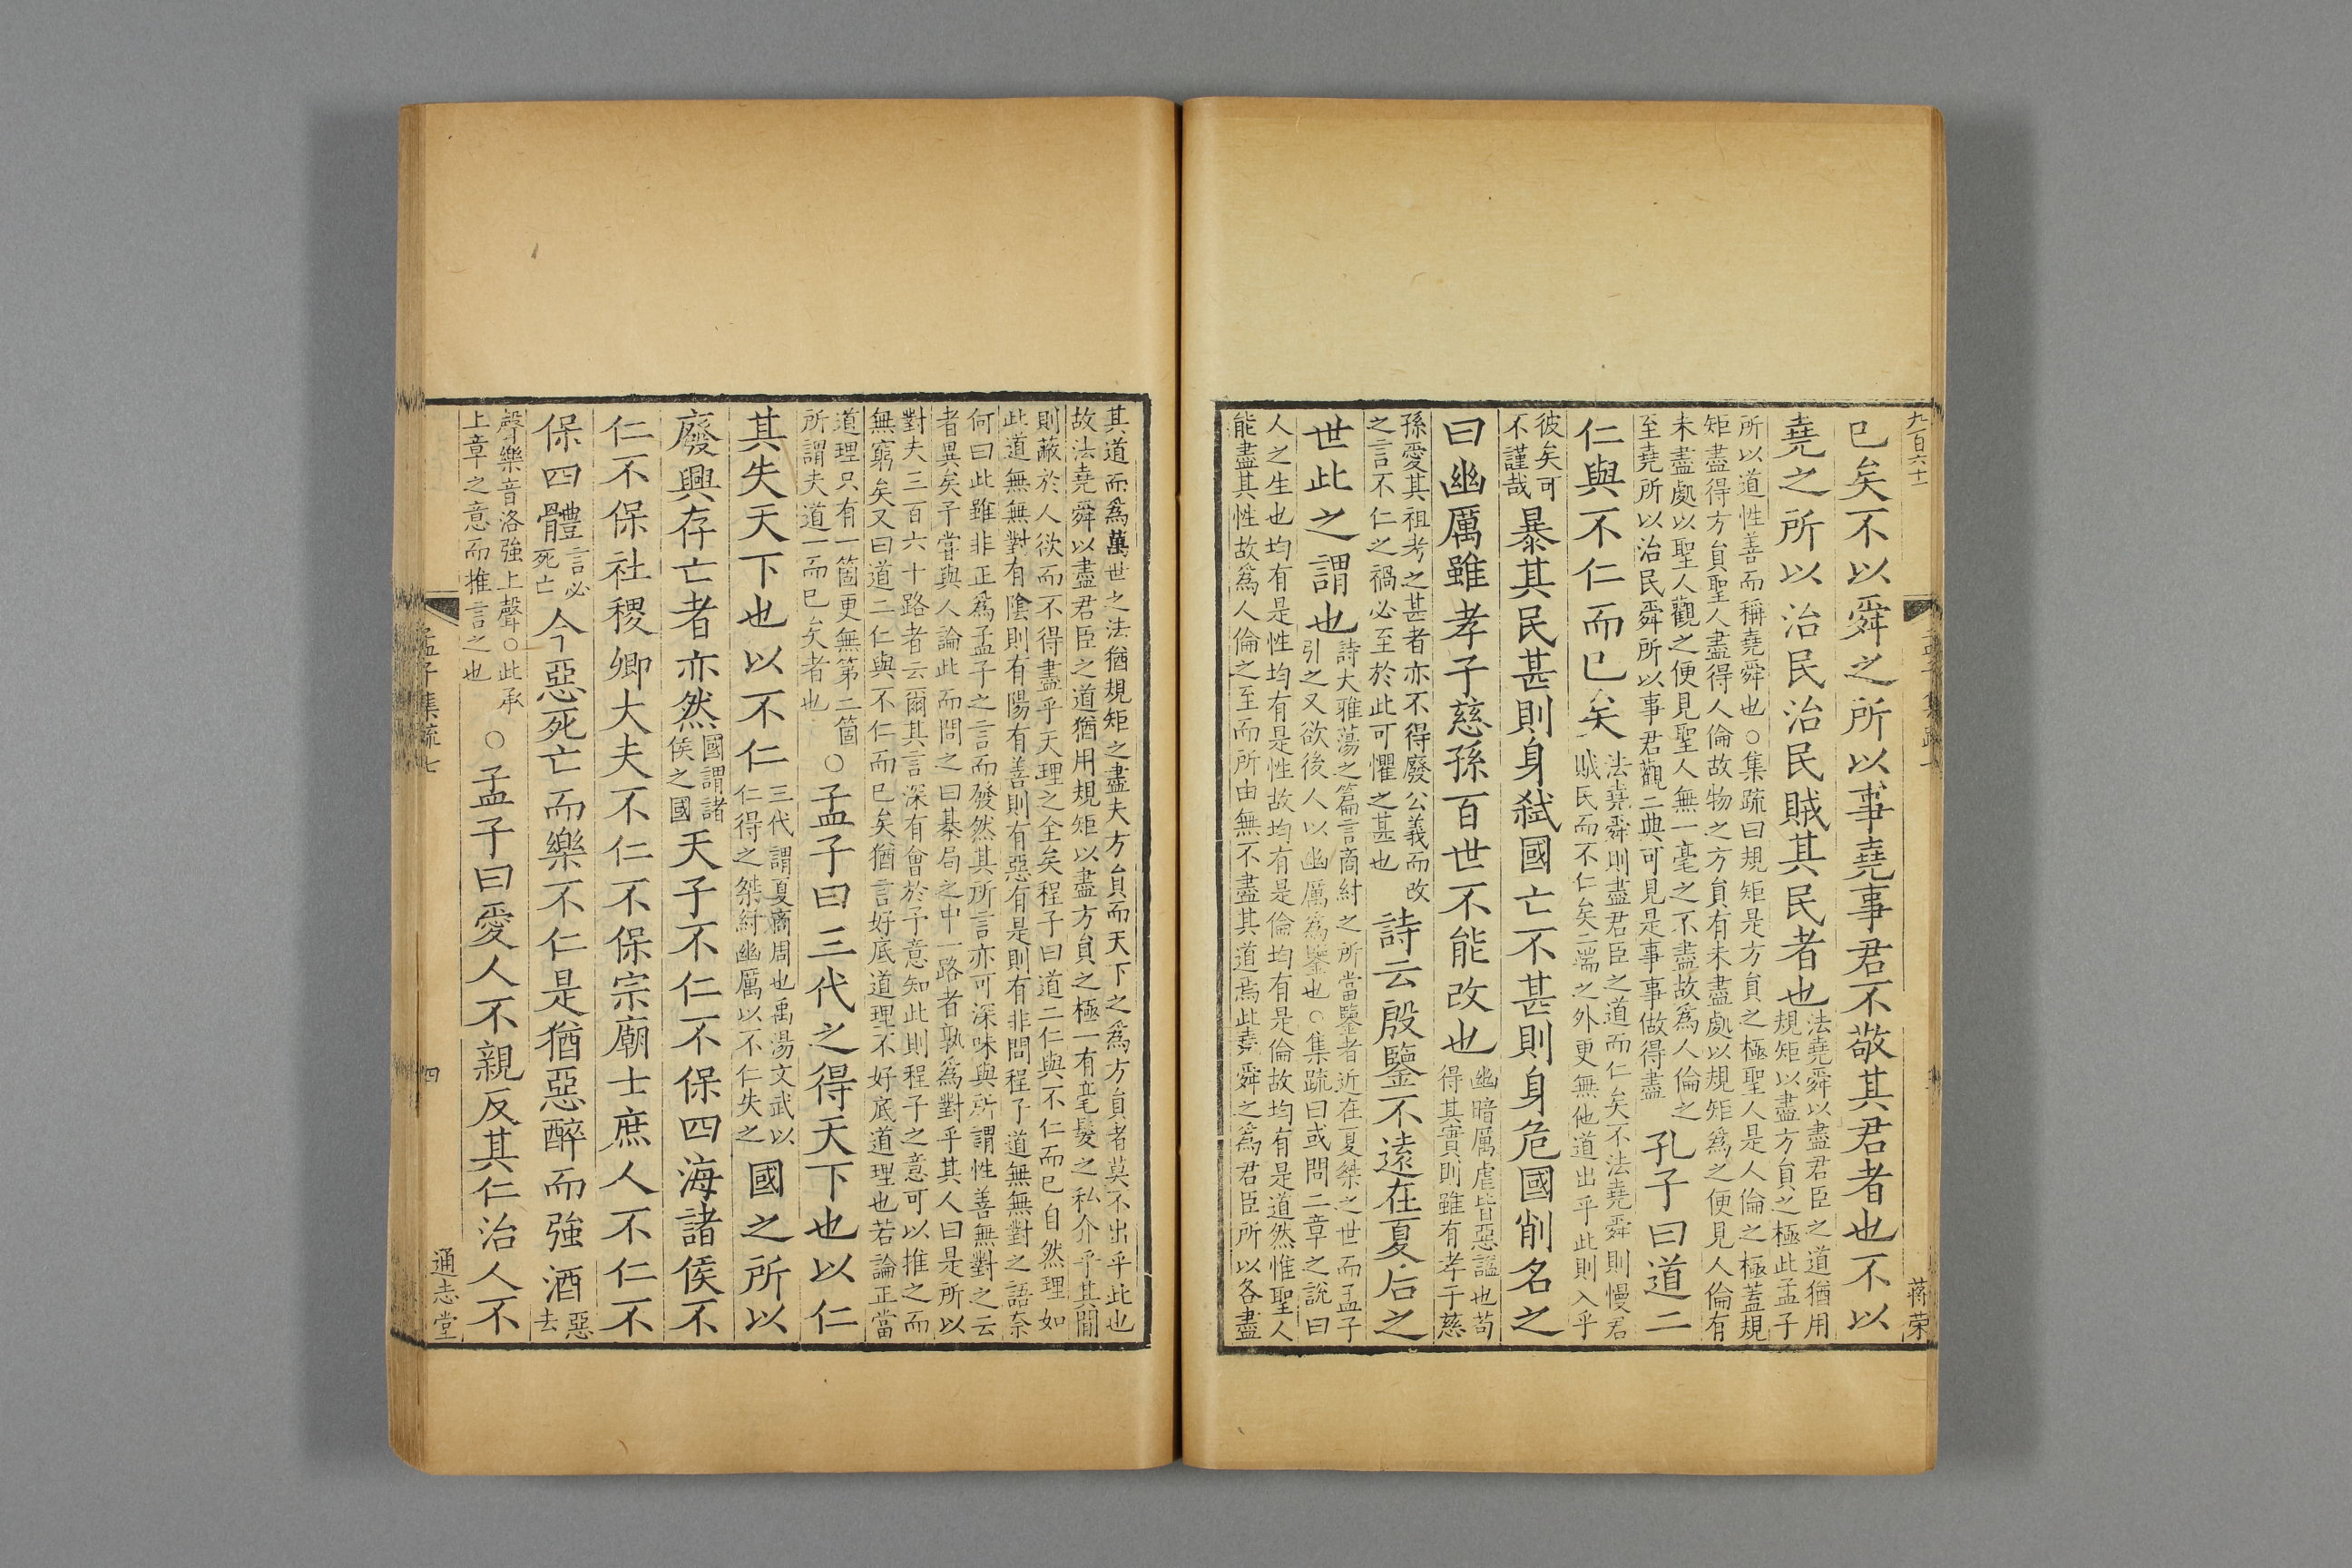 九百六十一
孟子集疏
蔣荣
已矣不以舜之所以事堯事君不敬其君者也不以
堯之所以治民治民賊其民者也法堯舜以盡君臣之道猶用
規矩以盡方員之極此孟子
所以道性善而稱堯舜也○集疏曰規矩是方員之極聖人是人倫之極蓋規
矩盡得方員聖人盡得人倫故物之方員有未盡處以規矩為之便見人倫有
未盡處以聖人觀之便見聖人無一毫之不盡故為人倫之
至堯所以治民舜所以事君觀二典可見是事事做得盡
孔子曰道二
仁與不仁而已矣法堯舜則盡君臣之道而仁矣不法堯舜則慢君
賊民而不仁矣二端之外更無他道出乎此則入乎
彼矣可
不謹哉
暴其民甚則身弒國亡不甚則身危國削名之
曰幽厲雖孝子慈孫百世不能改也幽暗厲虐皆惡謚也苟
得其實則雖有孝子慈
孫愛其祖考之甚者亦不得廢公義而改
之言不仁之禍必至於此可懼之甚也
詩云殷鑒不遠在夏后之
世此之謂也詩大雅蕩之篇言商紂之所當鑒者近在夏桀之世而孟子
引之又欲後人以幽厲為鑒也○集疏曰或問二章之說曰
人之生也均有是性均有是性故均有是倫均有是倫故均有是道然惟聖人
能盡其性故為人倫之至而所由無不盡其道焉此堯舜之為君臣所以各盡
其道而為萬世之法猶規矩之盡夫方員而天下之為方員者莫不出乎此也
故法堯舜以盡君臣之道猶用規矩以盡方員之極一有毫髮之私介乎其間
則蔽於人欲而不得盡乎天理之全矣程子曰道二仁與不仁而已自然理如
此道無無對有陰則有陽有善則有惡有是則有非問程子道無無對之語奈
何曰此雖非正為孟子之言而發然其所言亦可深味與所謂性善無對之云
者異矣子嘗與人論此而問之曰棊局之中一路者孰為對乎其人曰是所以
對夫三百六十路者云爾其言深有會於予意知此則程子之意可以推之而
無窮矣又曰道二仁與不仁而已矣猶言好底道理不好底道理也若論正當
道理只有一箇更無第二箇
所謂夫道一而已矣者也
○孟子曰三代之得天下也以仁
其失天下也以不仁三代謂夏商周也禹湯文武以
仁得之桀紂幽厲以不仁失之
國之所以
廢興存亡者亦然國謂諸
侯之國
天子不仁不保四海諸侯不
仁不保社稷卿大夫不仁不保宗廟士庶人不仁不
保四體言必
死亡
今惡死亡而樂不仁是猶惡醉而強酒惡
去
聲樂音洛強上聲○此承
上章之意而推言之也
○孟子曰愛人不親反其仁治人不
孟子集疏七
四
通志堂